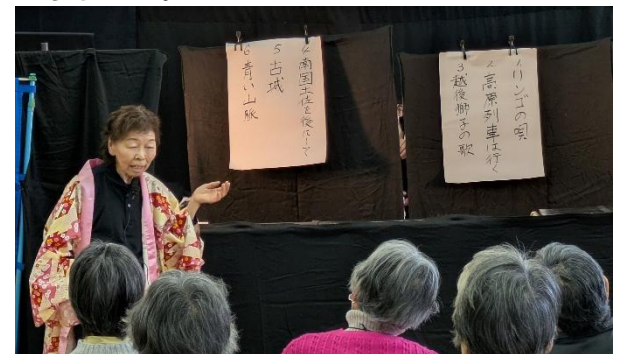 1 リンゴの唄
2 高原列車は行く
3 越後獅子の歌
4 南国土佐を後にして
5 古城
6 青い山脈